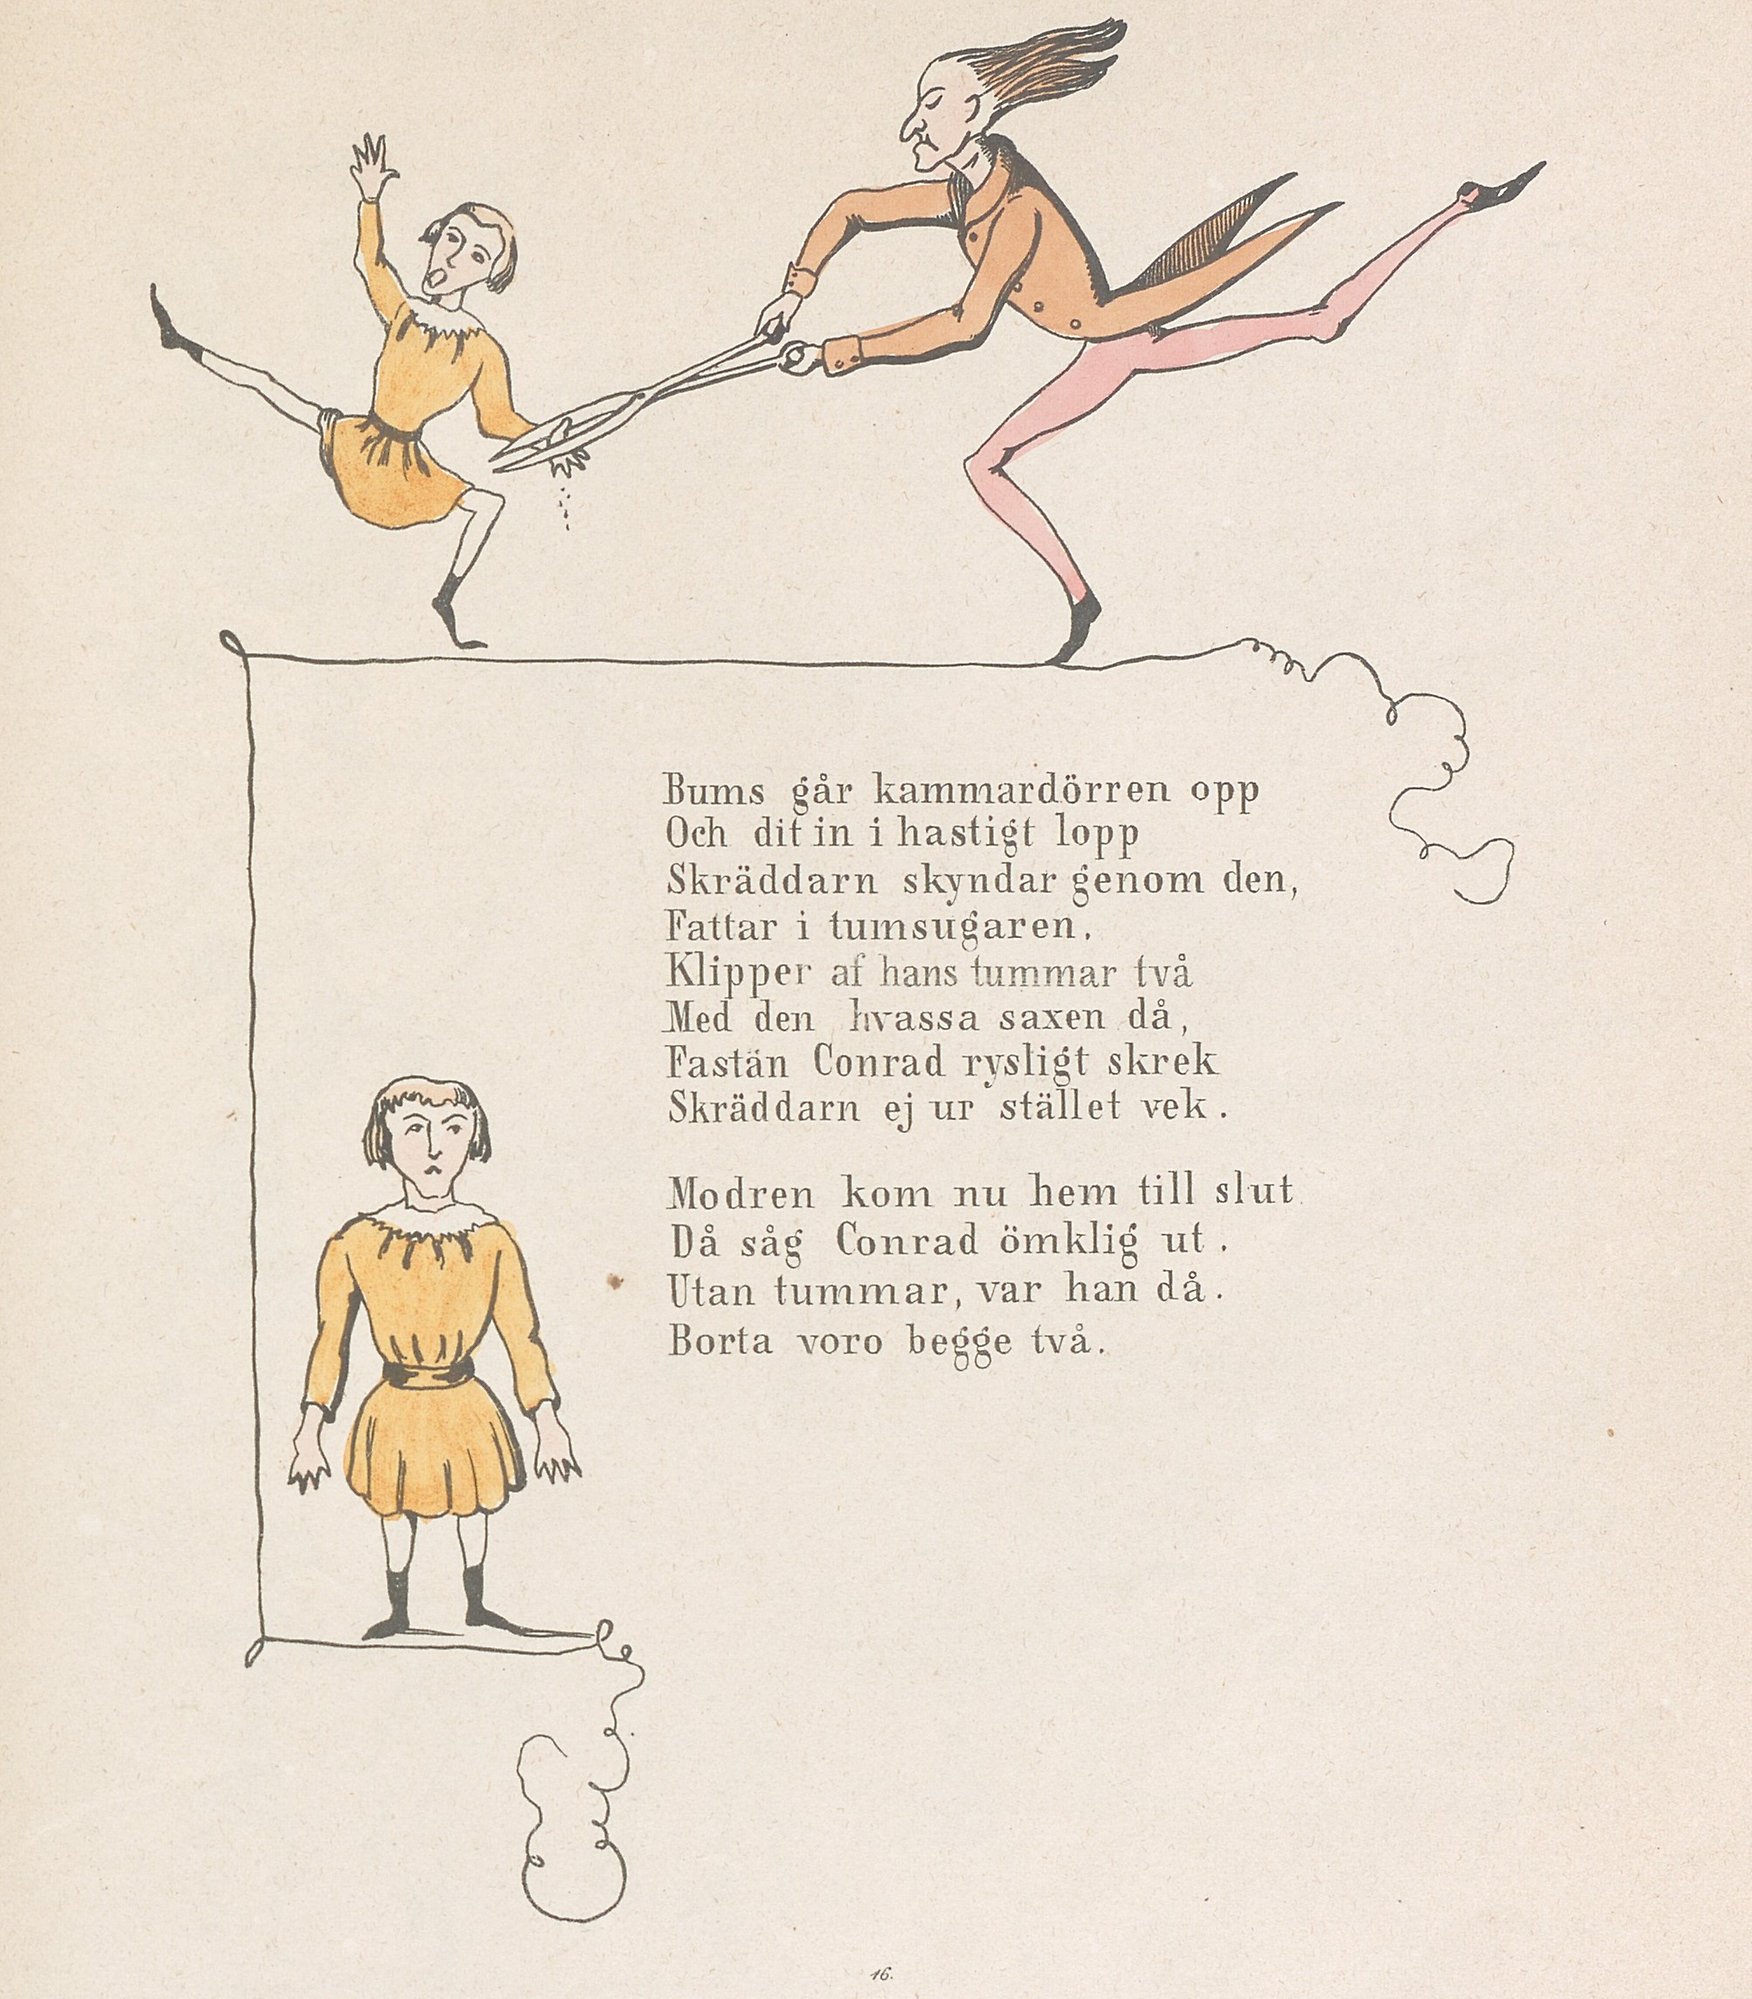 Bums går kammardörren opp
Och dit in i hastigt lopp
Skräddarn skyndar genom den,
Fattar i tumsugaren.
Klipper af hans tummar två
Med den hvassa saxen då,
Fastän Conrad rysligt skrek
Skräddarn ej ur stället vek.
Modren kom nu hem till slut
Då såg Conrad ömklig ut.
Utan tummar, var han då.
Borta voro begge två.
16.